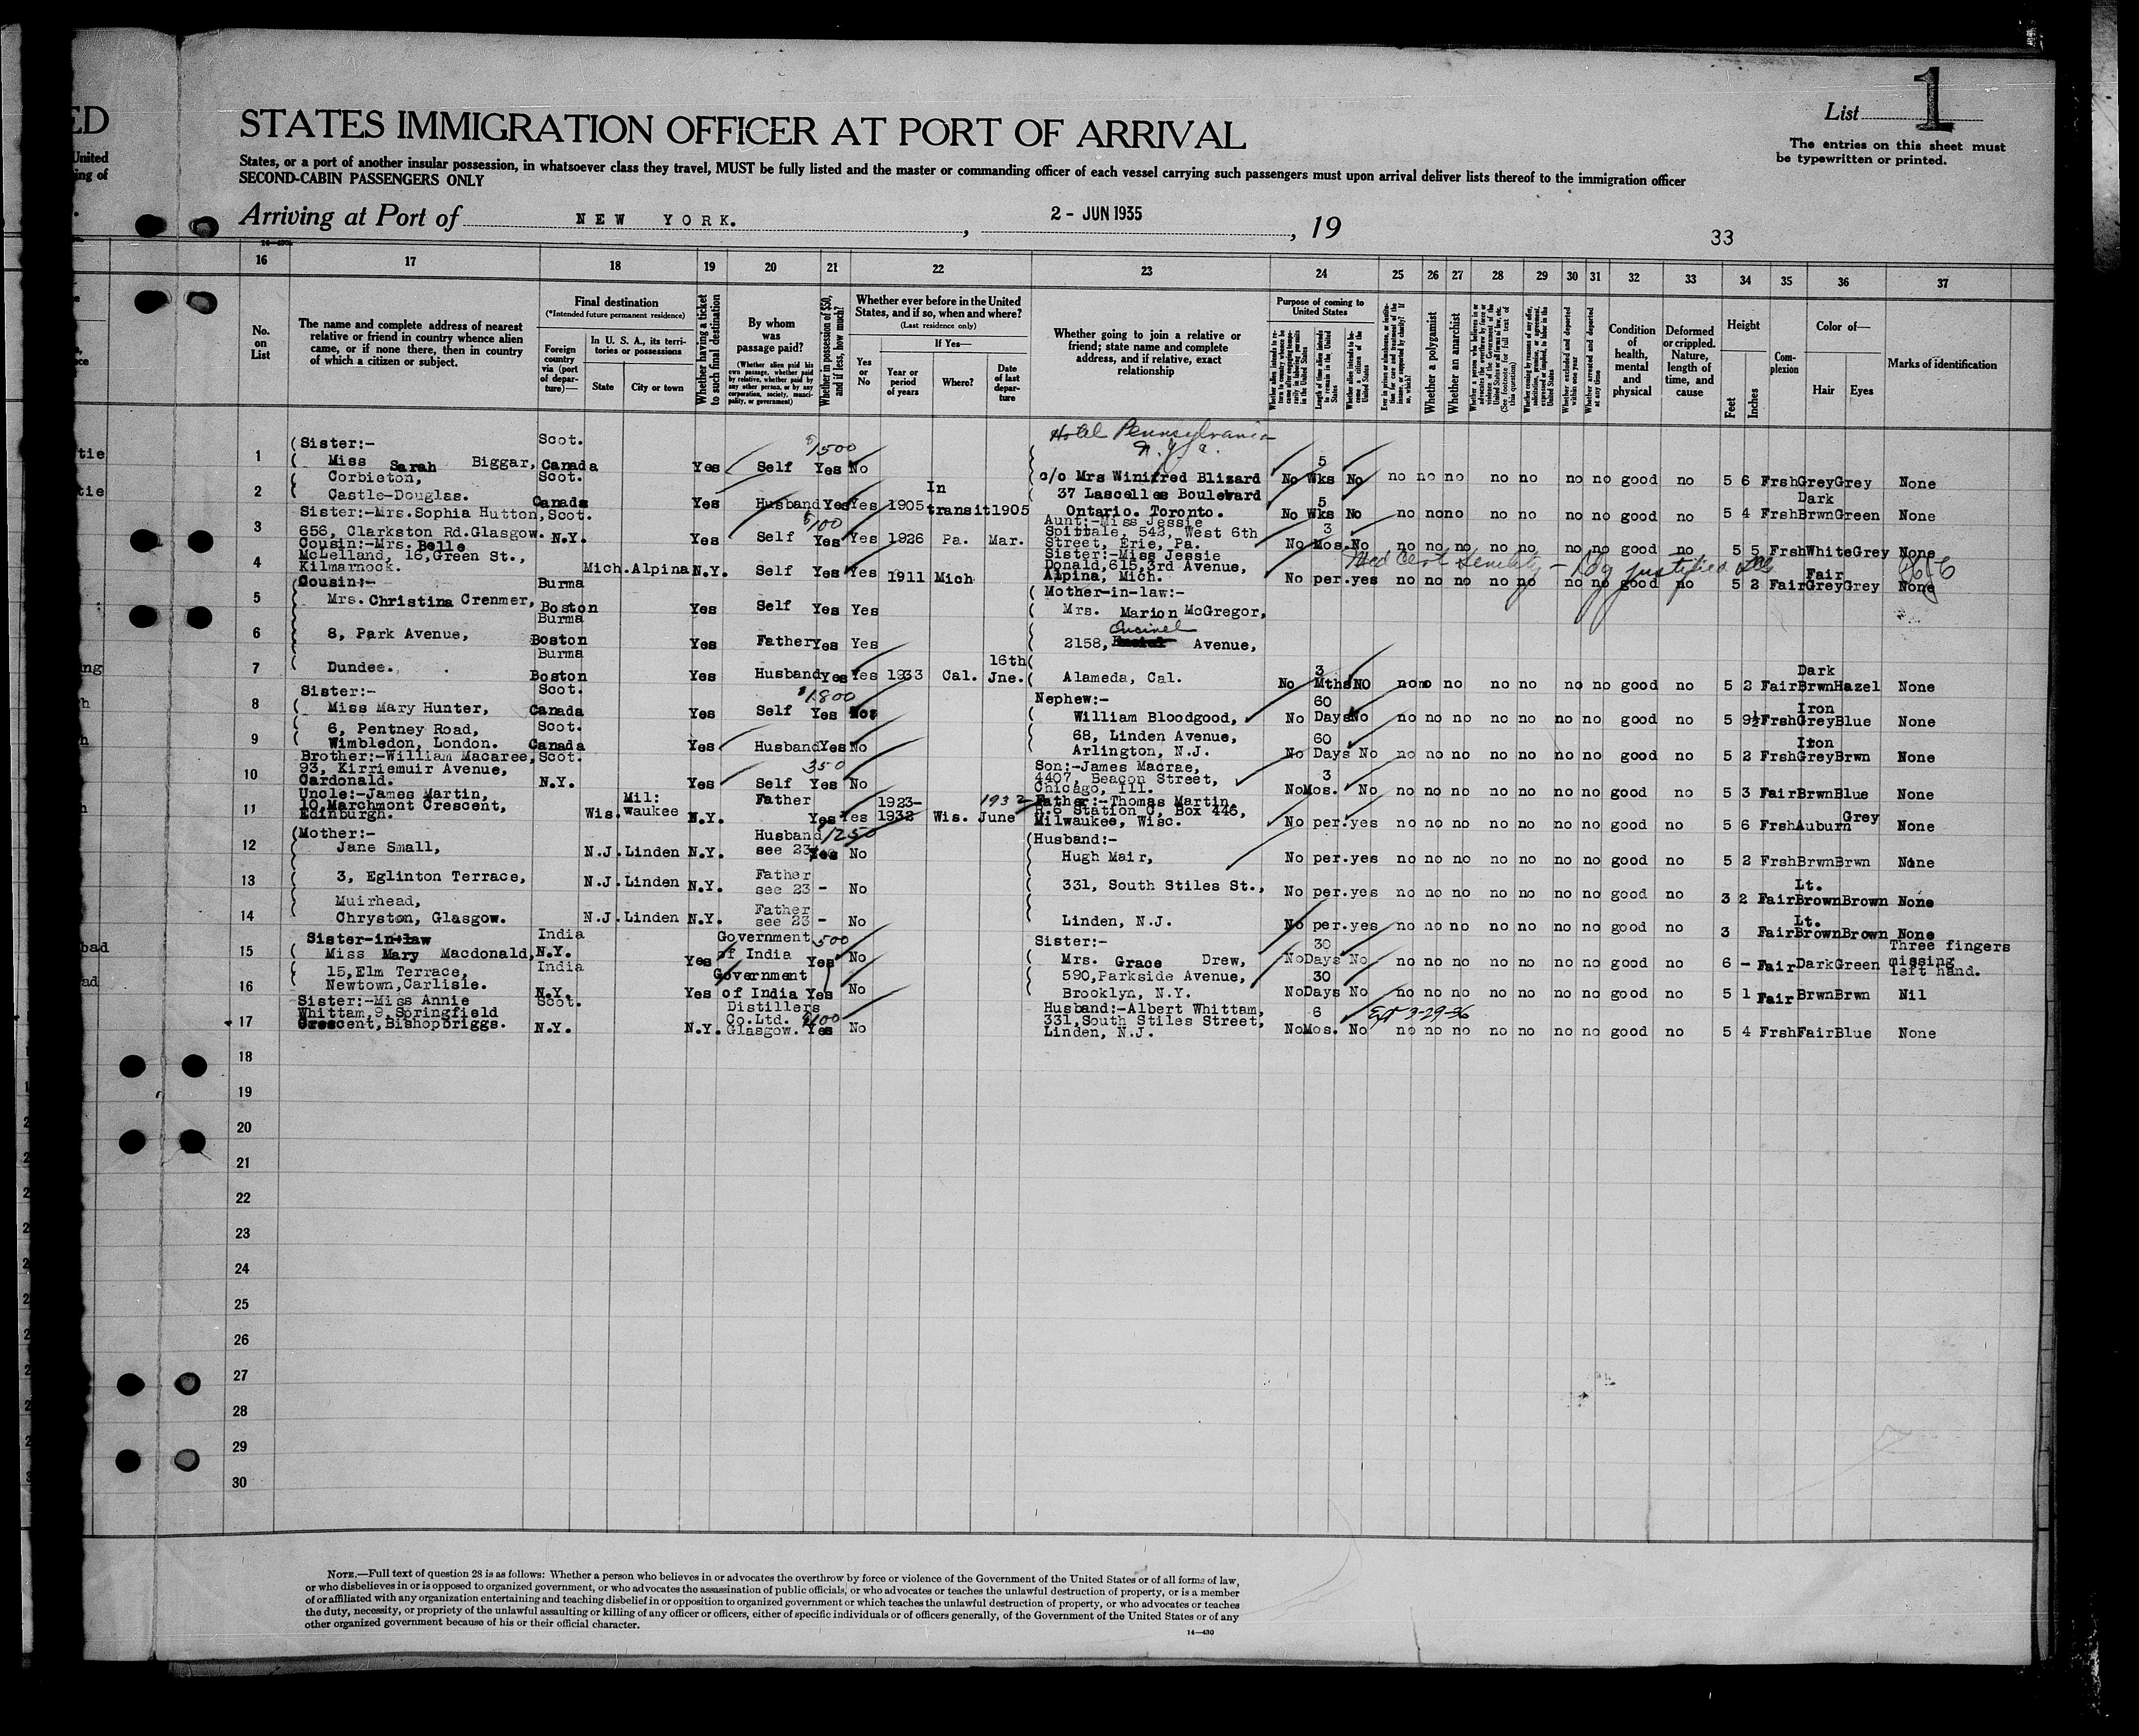 ED
United
ing of
List 1
STATES IMMIGRATION OFFICER AT PORT OF ARRIVAL
The entries on this sheet must
be typewritten or printed.
States, or a port of another insular possession, in whatsoever class they travel, MUST be fully listed and the master or commanding officer of each vessel carrying such passengers must upon arrival deliver lists thereof to the immigration officer
SECOND-CABIN PASSENGERS ONLY
Arriving at Port of NEW YORK. , 2 - JUN 1935 , 19
33
16 17 18 19 20 21 22 23 24 25 26 27 28 29 30 31 32 33 34 35 36 37
No. on List
The name and complete address of nearest
relative or friend in country whence alien
came, or if none there, then in country
of which a citizen or subject.
Final destination
(*Intended future permanent residence)
Foreign country via (port of departure)—
In U. S. A., its territories or possessions
State City or town
Whether having a ticket to such final destination
By whom was passage paid?
(Whether alien paid his own passage, whether paid by relative, whether paid by any other person, or by any corporation, society, municipality, or government)
Whether in possession of $50, and if less, how much?
Whether ever before in the United States, and if so, when and where?
(Last residence only)
Yes or No
If Yes—
Year or period of years
Where?
Date of last departure
Whether going to join a relative or
friend; state name and complete
address, and if relative, exact
relationship
Purpose of coming to United States
Whether a polygamist
Whether an anarchist
Condition of health, mental and physical
Deformed or crippled. Nature, length of time, and cause
Height
Feet Inches
Complexion
Color of—
Hair Eyes
Marks of identification
Hotel Pennsylvania
1 (Sister:- Miss Sarah Biggar, Scot. Canada Yes Self $1500 Yes No c/o Mrs Winifred Blizard No 5 Wks No no no no no no no no good no 5 6 Frsh Grey Grey None
2 Corbieton, Castle-Douglas. Scot. Canada Yes Husband Yes Yes 1905 In transit 1905 37 Lascelles Boulevard Ontario. Toronto. No 5 Wks No no no no no no no no good no 5 4 Frsh Dark Brwn Green None
3 Sister:-Mrs.Sophia Hutton, 656, Clarkston Rd.Glasgow. Scot. N.Y. Yes Self $100 Yes Yes 1926 Pa. Mar. Aunt:-Miss Jessie Spittale, 542, West 6th Street, Erie, Pa. No 3 Mos. No no no no no no no no good no 5 5 Frsh White Grey None
4 Cousin:-Mrs. Belle McLelland, 16,Green St., Kilmarnock. Mich. Alpina N.Y. Self Yes Yes 1911 Mich Sister:-Miss Jessie Donald,615,3rd Avenue, Alpina, Mich. No per. yes no no no no no no no good no 5 2 Fair Fair Grey Grey None
Med Cert Senility - justified
5 (Cousin:- Mrs. Christina Crenmer, Burma Boston Yes Self Yes Yes (Mother-in-law:- Mrs. Marion McGregor,
6 8, Park Avenue, Burma Boston Yes Father Yes Yes 2158, Encinel Avenue,
7 Dundee. Burma Boston Yes Husband Yes Yes 1933 Cal. 16th Jne. Alameda, Cal. No 3 Mths NO no no no no no no no good no 5 2 Fair Dark Brwn Hazel None
8 (Sister:- Miss Mary Hunter, Scot. Canada Yes Self $1800 Yes Nephew:- William Bloodgood, No 60 Days No no no no no no no no good no 5 9½ Frsh Iron Grey Blue None
9 6, Pentney Road, Wimbledon, London. Scot. Canada Yes Husband Yes No 68, Linden Avenue, Arlington, N.J. No 60 Days No no no no no no no no good no 5 2 Frsh Iron Grey Brwn None
10 Brother:-William Macaree, 93, Kirriemuir Avenue, Cardonald. Scot. N.Y. Yes Self 350 Yes No Son:-James Macrae, 4407, Beacon Street, Chicago, Ill. No 3 Mos. No no no no no no no no good no 5 3 Fair Brwn Blue None
11 Uncle:-James Martin, 10,Marchmont Crescent, Edinburgh. Wis. Mil: waukee N.Y. Father Yes Yes 1923- 1932 Wis. 1932 June Father:-Thomas Martin, R.6 Station C, Box 446, Milwaukee, Wisc. No per. yes no no no no no no no good no 5 6 Frsh Auburn Grey None
12 (Mother:- Jane Small, N.J. Linden N.Y. Husband see 23 $1250 Yes No (Husband:- Hugh Mair, No per. yes no no no no no no no good no 5 2 Frsh Brwn Brwn None
13 3, Eglinton Terrace, N.J. Linden N.Y. Father see 23 - No 331, South Stiles St., No per. yes no no no no no no no good no 3 2 Fair Lt. Brown Brown None
14 Muirhead, Chryston, Glasgow. N.J. Linden N.Y. Father see 23 - No Linden, N.J. No per. yes no no no no no no no good no 3 Fair Lt. Brown Brown None
15 Sister-in-law Miss Mary Macdonald, India N.Y. Yes Government of India 500 Yes No Sister:- Mrs. Grace Drew, No 30 Days No no no no no no no no good no 6 - Fair Dark Green Three fingers missing left hand.
16 15,Elm Terrace, Newtown,Carlisle. India N.Y. Yes Government of India Yes No 590,Parkside Avenue, Brooklyn, N.Y. No 30 Days No no no no no no no no good no 5 1 Fair Brwn Brwn Nil
17 Sister:-Miss Annie Whittam,9.Springfield Crescent,Bishopbriggs. Scot. N.Y. N.Y. Distillers Co.Ltd. Glasgow. $100 Yes No Husband:-Albert Whittam, 331,South Stiles Street, Linden, N.J. No 6 Mos. No Ext 3-29-36 no no no no no no no good no 5 4 Frsh Fair Blue None
18
19
20
21
22
23
24
25
26
27
28
29
30
NOTE.—Full text of question 28 is as follows: Whether a person who believes in or advocates the overthrow by force or violence of the Government of the United States or of all forms of law,
or who disbelieves in or is opposed to organized government, or who advocates the assassination of public officials, or who advocates or teaches the unlawful destruction of property, or is a member
of or affiliated with any organization entertaining and teaching disbelief in or opposition to organized government or which teaches the unlawful destruction of property, or who advocates or teaches
the duty, necessity, or propriety of the unlawful assaulting or killing of any officer or officers, either of specific individuals or of officers generally, of the Government of the United States or of any
other organized government because of his or their official character.
14—430